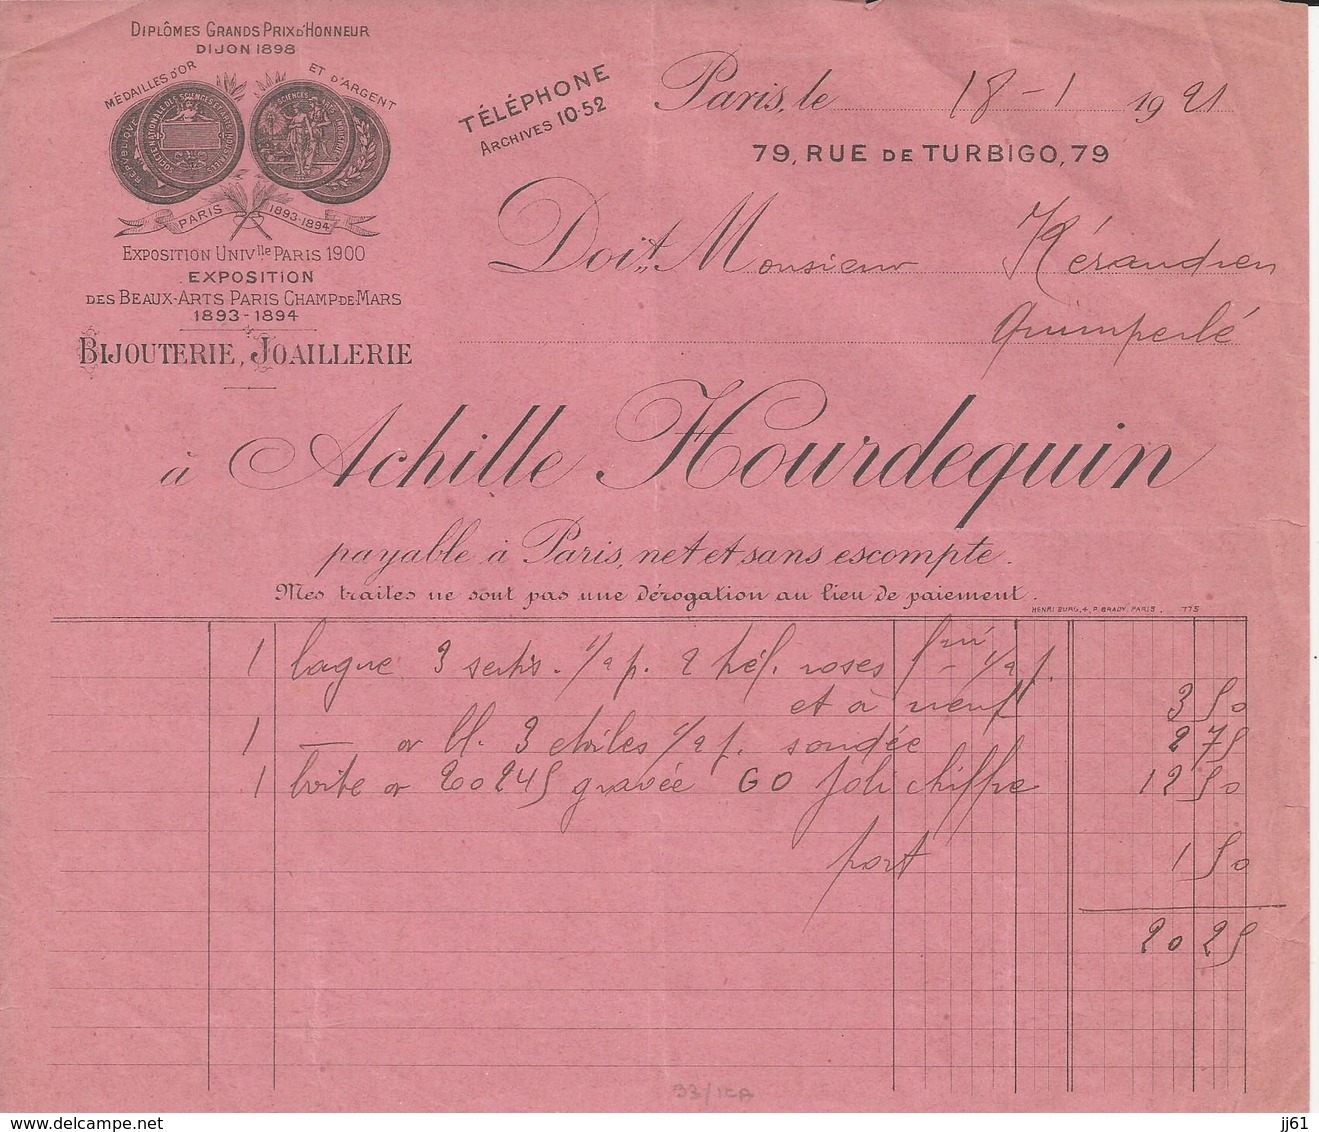 DIPLÔMES GRANDS PRIX D'HONNEUR
DIJON 1898
MÉDAILLES D'OR ET D'ARGENT
PARIS 1893-1894
EXPOSITION UNIVlle PARIS 1900
EXPOSITION
DES BEAUX-ARTS PARIS CHAMP-DE-MARS
1893-1894
BIJOUTERIE, JOAILLERIE
TÉLÉPHONE
ARCHIVES 10-52
Paris, le 18-1 1921
79, RUE DE TURBIGO, 79
Doit Monsieur Kérandren
Quimperlé
à Achille Hourdequin
payable à Paris, net et sans escompte.
Mes traites ne sont pas une dérogation au lieu de paiement.
HENRI BURG, 4, P. BRADY, PARIS. 775
1 bague 3 sertis. 1/2 p. 2 roses 1/2 f.
et à neuf 3 50
1 — or 3 etoiles 1/2 f. soudée 2 75
1 boite or 20245 gravée GO Joli chiffre 12 50
port 1 50
20 25
jj61